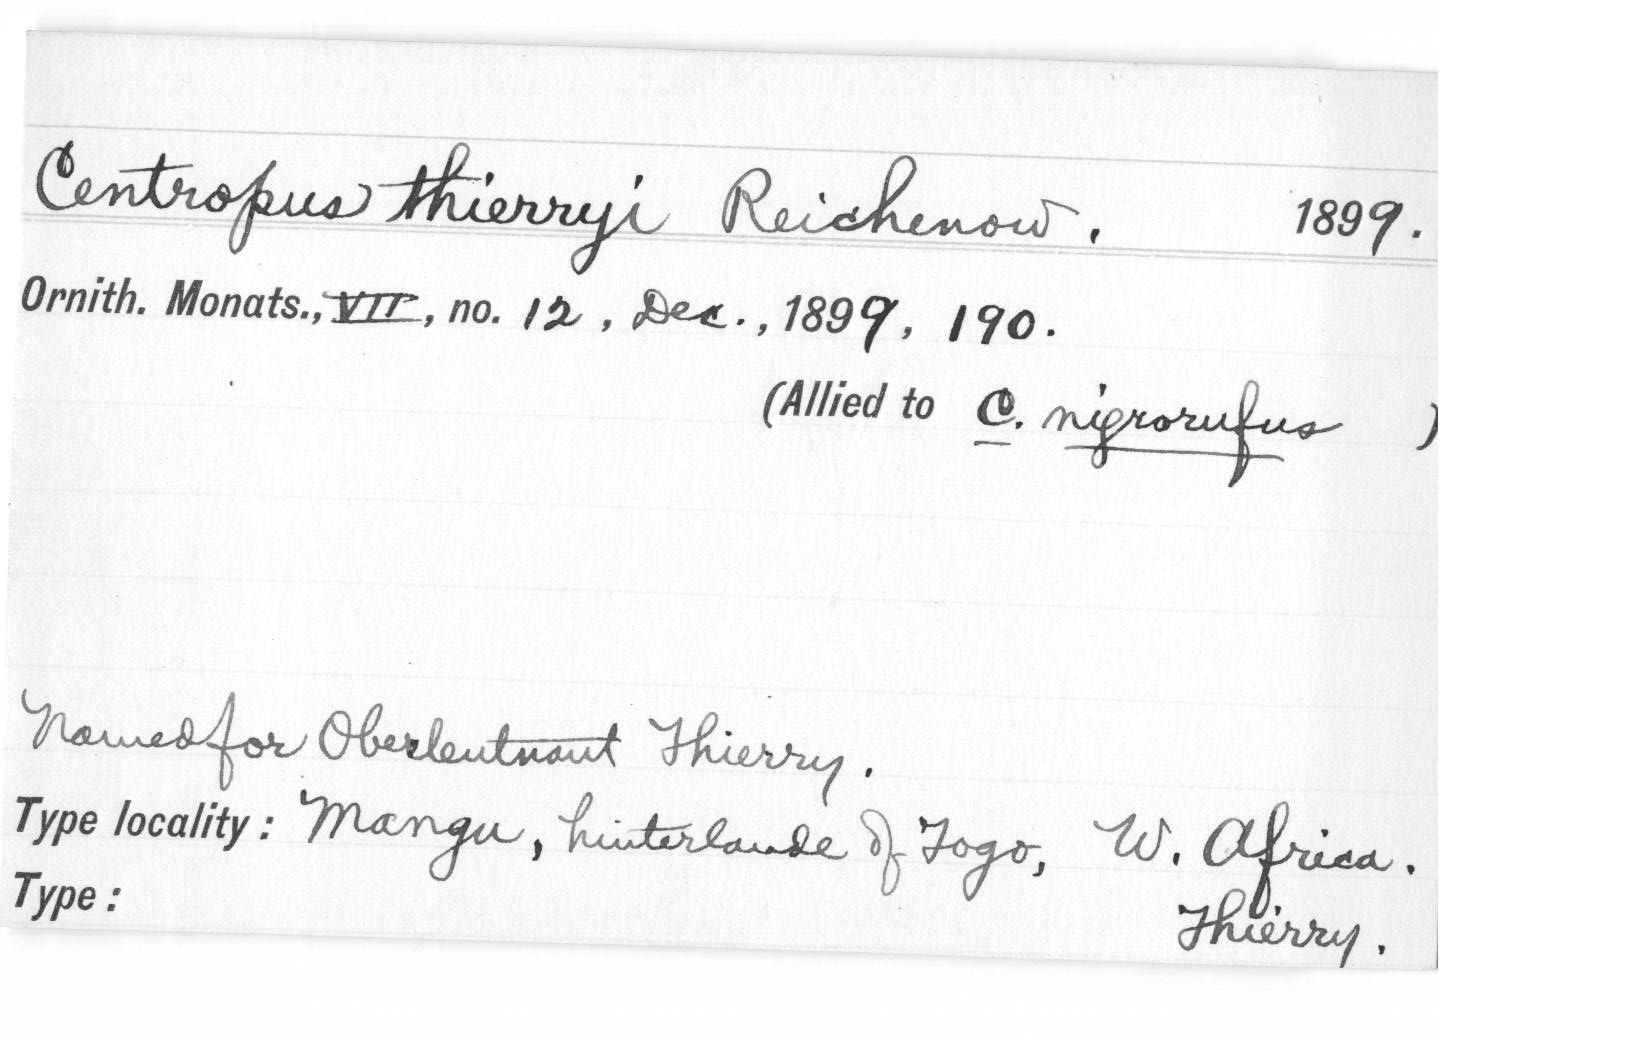 Centropus thierryi Reichenow. 1899.
Ornith. Monats., VII, no. 12, Dec., 1899, 190.
(Allied to C. nigrorufus )
Named for Oberleutnant Thierry.
Type locality: Mangu, hinterlande of Togo, W. Africa.
Type: Thierry.